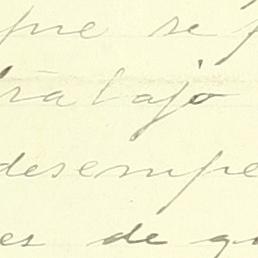 que se p
trabajo
desempe
es de qu